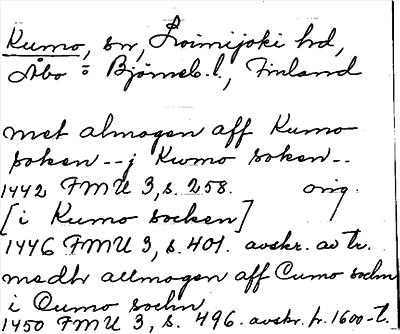 Kumo, sn, Loimijoki hd,
Åbo o Björneb. l., Finland
met almogen aff Kumo
soken -- j Kwmo soken --
1442 FMU 3, s. 258. orig.
[i Kumo socken]
1446 FMU 3, s. 401. avskr. av tr.
medh allmogen aff Cumo sochn
i Qumo sochn
1450 FMU 3, s. 496. avskr. fr. 1600-t.